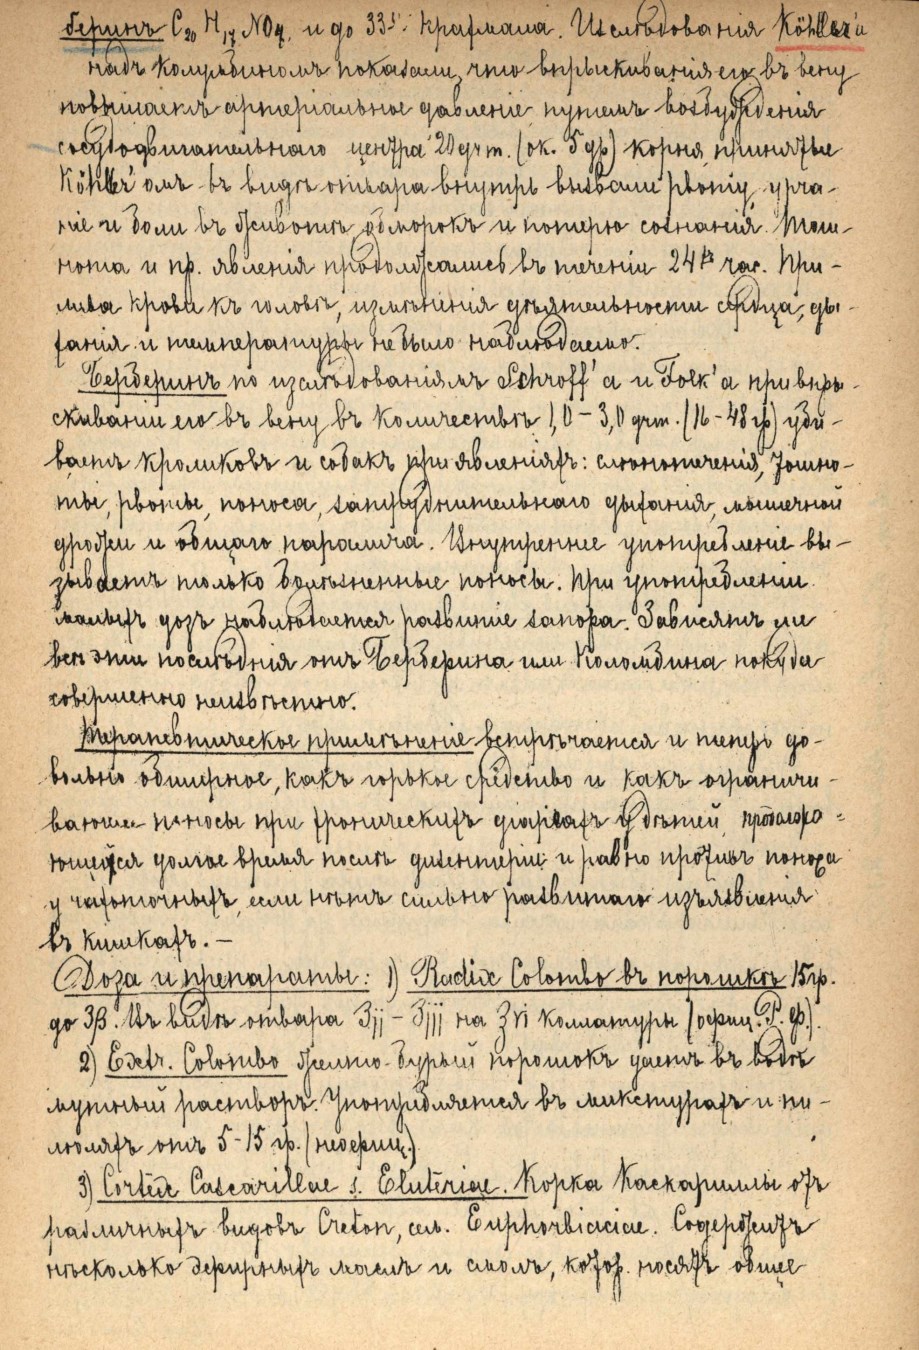 беринъ C₂₀ H₁₇ NO₄, и до 33% крахмала. Изслѣдованія Köhler'а
надъ колумбиномъ показали, что впрыскиванія его въ вену
повышаетъ артеріальное давленіе путемъ возбужденія
сосудодвигательнаго центра 20 дчт. (ок. 5 др) корня, принятые
Köhler'омъ въ видѣ отвара внутрь вызвали рвоту, урча-
ніе и боли въ животѣ, обморокъ и потерю сознанія. Тош-
нота и пр. явленія продолжались въ теченіи 24хъ час. При-
лива крови къ головѣ, измѣненія дѣятельности сердца, ды-
ханія и температуры не было наблюдаемо.
Берберинъ по изслѣдованіямъ Schroff'а и Folk'а при впры-
скиваніи его въ вену въ количествѣ 1,0 – 3,0 дчт. (16 – 48 гр) уби-
ваетъ кроликовъ и собакъ при явленіяхъ: слюнотеченія, тошно-
ты, рвоты, поноса, затруднительнаго дыханія, мышечной
дрожи и общаго паралича. Внутреннее употребленіе вы-
зываетъ только болѣзненные поносы. При употребленіи
малыхъ дозъ наблюдается развитіе запора. Зависятъ ли
всѣ эти послѣднія отъ Берберина или Коломбина покуда
совершенно неизвѣстно.
Терапевтическое примѣненіе встрѣчается и теперь до-
вольно обширное, какъ горькое средство и какъ ограничи-
вающее поносы при хроническихъ діареяхъ у дѣтей,
ющейся долгое время послѣ дизентеріи и равно противъ поноса
у чахоточныхъ, если нѣтъ сильно развитаго изъязвленія
въ кишкахъ. –
Доза и препараты: 1) Radix Colombo въ порошкѣ 15 гр.
до ℨβ. Въ видѣ отвара ℨjj – ℨjjj на ℥vi коллатуры (офиц. Р. Ф.).
2) Extr. Colombo желто-бурый порошокъ даетъ въ водѣ
мутный растворъ. Употребляется въ микстурахъ и пи-
люляхъ отъ 5-15 гр. (неофиц.)
3) Cortex Cascarillae s. Eluteriae. Корка Каскариллы отъ
различныхъ видовъ Croton, сем. Euphorbiaciae. Содержитъ
нѣсколько эфирныхъ маслъ и смолъ, котор. носятъ общее